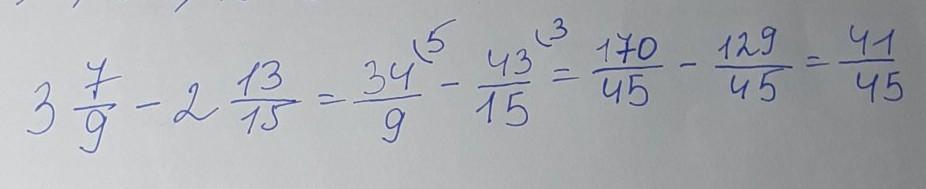 3 7/9 - 2 13/15 = 34/9 (5 - 43/15 (3 = 170/45 - 129/45 = 41/45